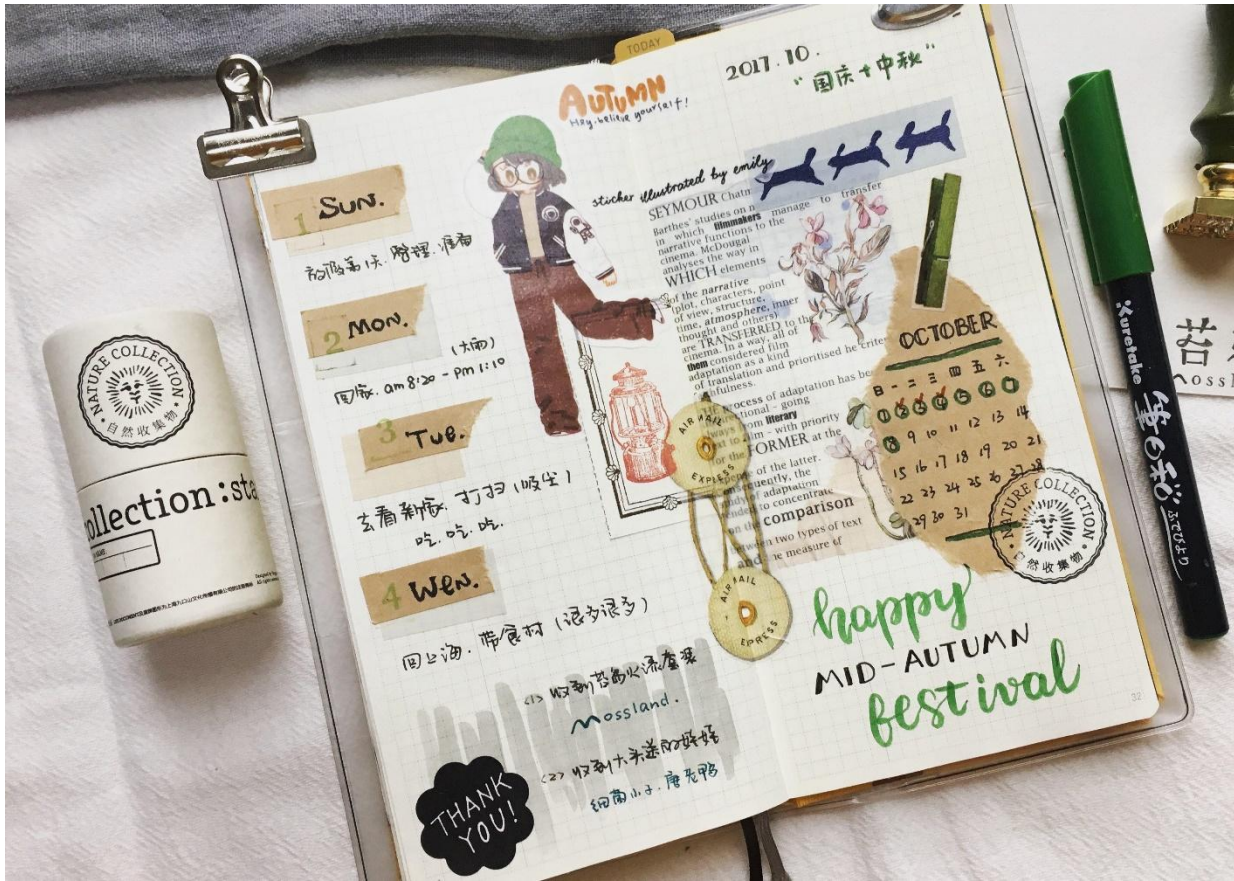 TODAY
AUTUMN
Hey, believe yourself!
2017.10.
"国庆+中秋"
1 SUN.
放假第1天.整理.准备
2 MON.
(大雨)
回家. am 8:20 - pm 1:10
3 Tue.
去看新家. 打扫(吸尘)
吃.吃.吃.
4 Wen.
回上海. 带食材(很多很多)
<1> 收到苔的火漆套装
mossland.
<2> 收到大头送的娃娃
细菌小子.唐老鸭
THANK
YOU!
sticker illustrated by emily
SEYMOUR Chatm
Barthes' studies on n
in which filmmakers manage to transfer
narrative functions to the
cinema. McDougal
analyses the way in
WHICH elements
of the narrative
(plot, characters, point
of view, structure,
time, atmosphere, inner
thought and others)
are TRANSFERRED to the
cinema. In a way, all of
them considered film
adaptation as a kind
of translation and prioritised he criter
process of adaptation has be
literary
with priority
FORMER at the
of the latter.
the
adaptation
to concentrate
on the comparison
between two types of text
and the measure of
AIR MAIL
EXPRESS
AIR MAIL
EPRESS
OCTOBER
日 一 二 三 四 五 六
1 2 3 4 5 6 7
8 9 10 11 12 13 14
15 16 17 18 19 20 21
22 23 24 25 26 27 28
29 30 31
NATURE COLLECTION
自然收集物
happy
MID-AUTUMN
festival
32
NATURE COLLECTION
自然收集物
ollection:sta
Kuretake 筆日和 ふでびより
苔
moss